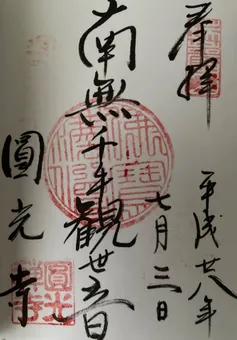 奉拝
平成廿八年
七月三日
南無千手観世音
圓光寺